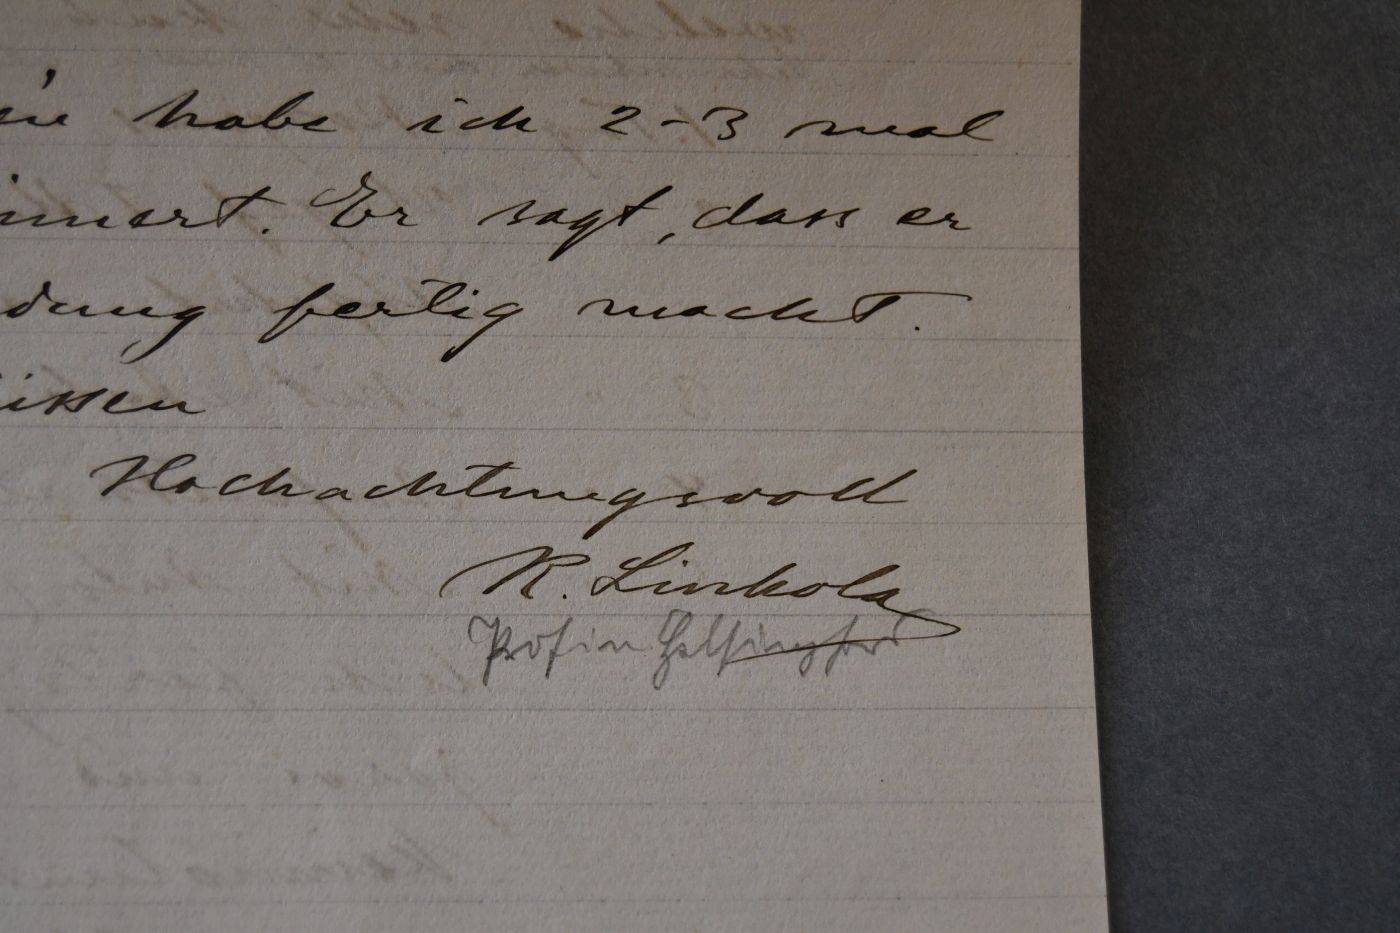 habe ich 2-3 mal
innert. Er sagt, dass er
dung fertig macht.
üssen
Hochachtungsvoll
K. Linkola
Prof in Helsingfors